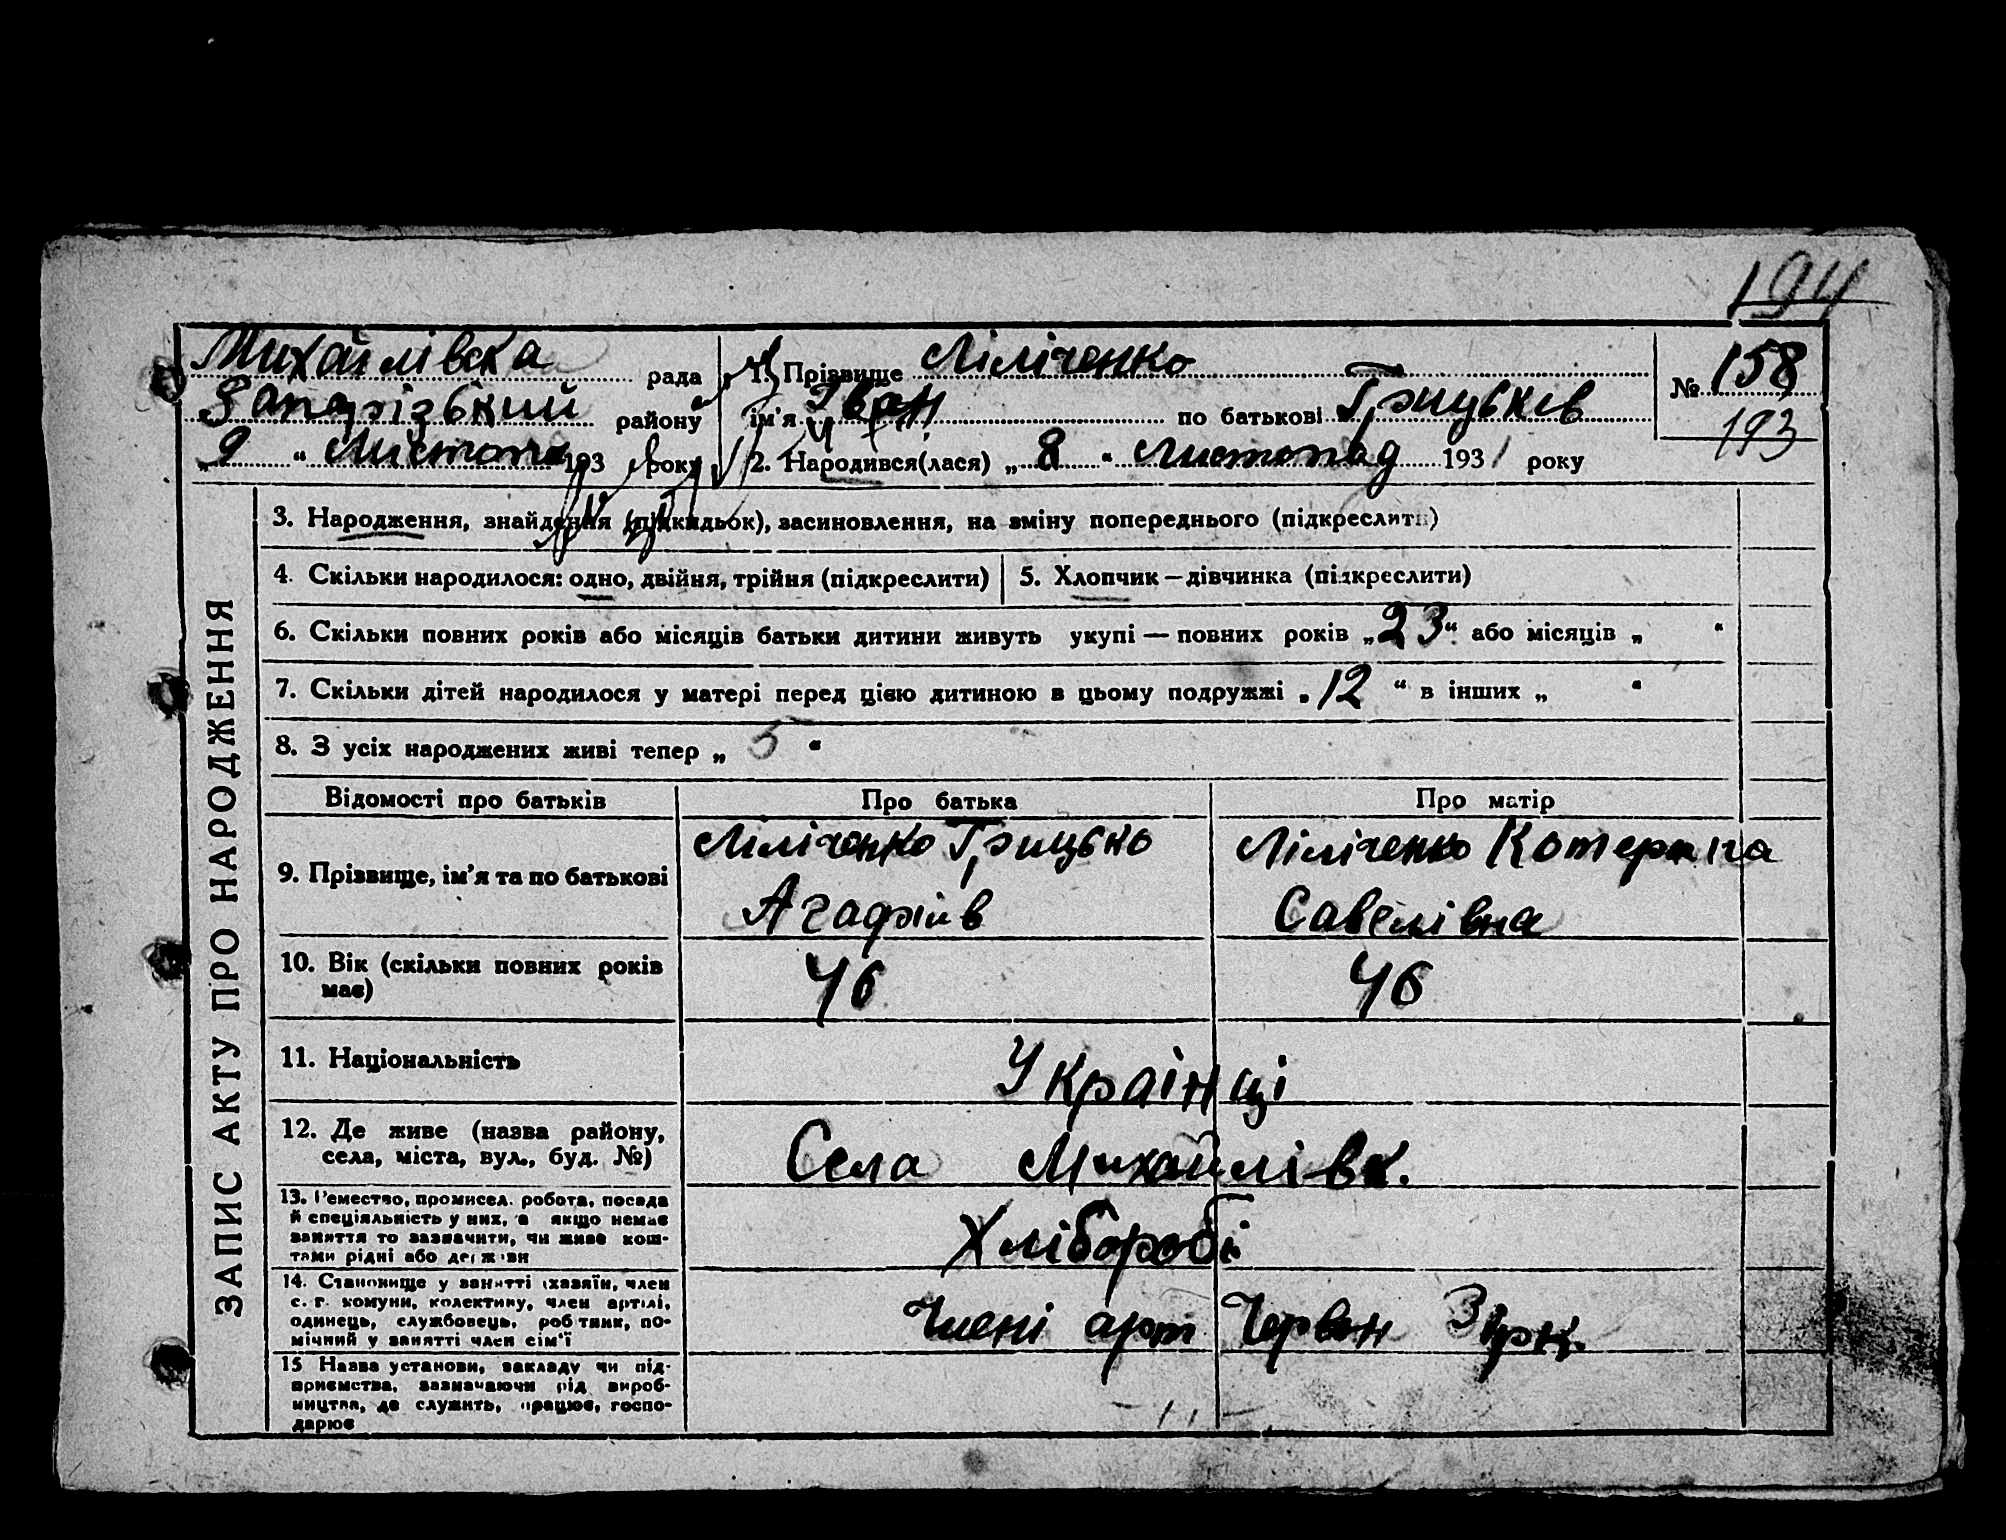 194
Михайлівска рада
Запорізький району
„ 9 “ Листопа 193 року
1. Прізвище Ліліченко
ім'я Іван по батькові Грицьків
2. Народився(лася) „ 8 “ Листопад 1931 року
№ 158
193
ЗАПИС АКТУ ПРО НАРОДЖЕННЯ
3. Народження, знайдення (підкидьок), засиновлення, на зміну попереднього (підкреслити)
4. Скільки народилося: одно, двійня, трійня (підкреслити)
5. Хлопчик — дівчинка (підкреслити)
6. Скільки повних років або місяців батьки дитини живуть укупі — повних років „ 23 “ або місяців „ “
7. Скільки дітей народилося у матері перед цією дитиною в цьому подружжі „ 12 “ в інших „ “
8. З усіх народжених живі тепер „ 5 “
Відомості про батьків Про батька Про матір
9. Прізвище, ім'я та по батькові
Ліліченко Грицько
Агафіів
Ліліченко Котерина
Савелівна
10. Вік (скільки повних років
має)
46 46
11. Національність
Украінці
12. Де живе (назва району,
села, міста, вул., буд. №)
Села Михайлівк.
13. Ремество, промисел. робота, посада
й спеціяльність у них, а якщо немає
заняття то зазначити, чи живе кош-
тами рідні або держави
Хліборобі
14. Становище у занятті (хазяїн, член
с. г. комуни, колективу, член артілі,
одинець, службовець, робітник, по-
мічний у занятті член сім'ї
Члені арт Червон Зірк.
15 Назва установи, закладу чи під-
приємства, зазначаючи рід вироб-
ництва, де служить, працює, госпо-
дарює
– 11 –